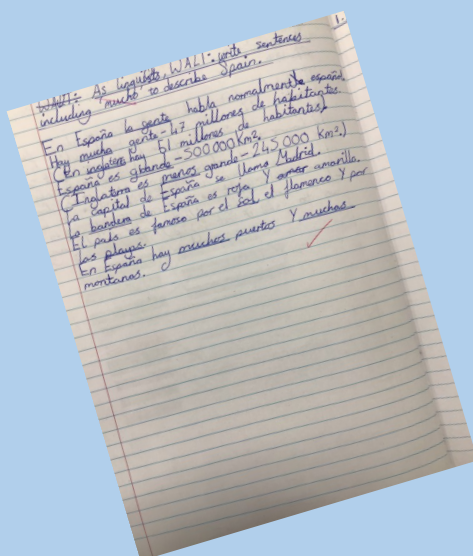 1.
WALT: As linguists, WALT: write sentences
including mucho to describe Spain.
En España la gente habla normalmente español.
Hay mucha gente - 47 millones de habitantes.
(En inglaterra hay 51 millones de habitantes)
España es grande - 500 000 km2.
(Inglaterra es menos grande - 245 000 km2.)
La capital de España se llama Madrid.
La bandera de España es roja y amarilla.
El país es famoso por el sol el flamenco y por
las playas.
En España hay muchos puertos y muchas
montanas.